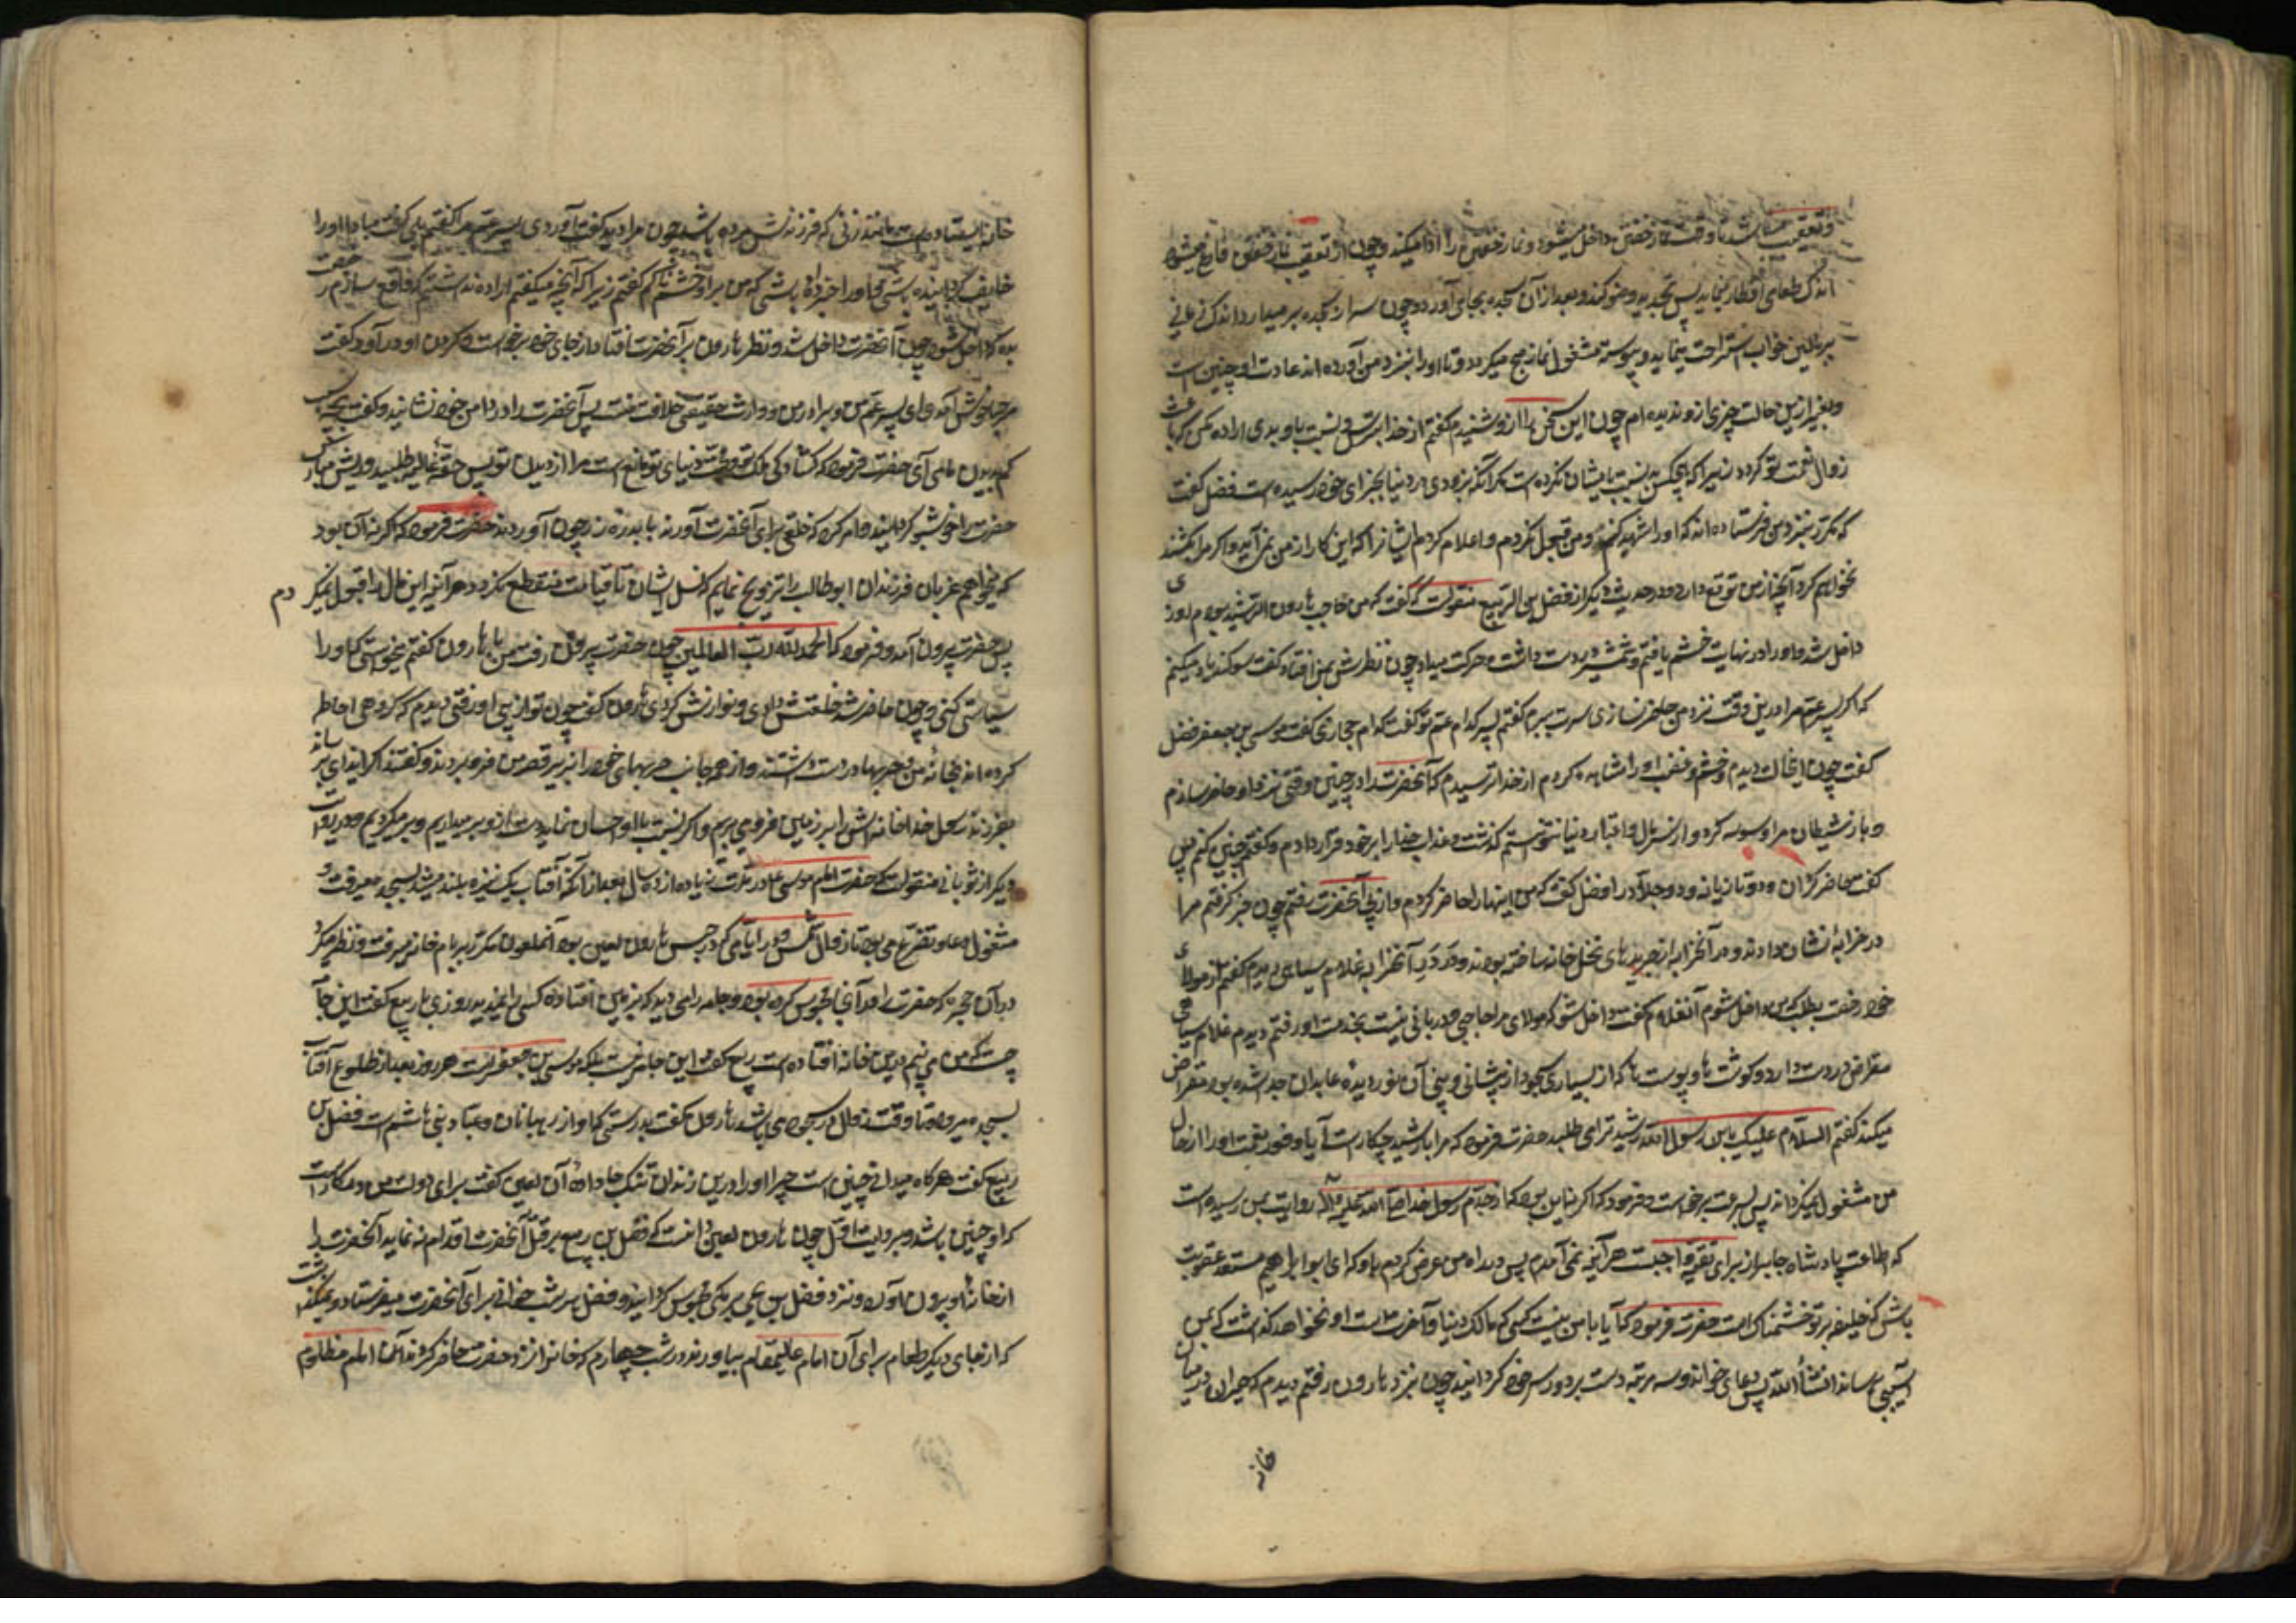 و تعقیب میباشد تا وقت نماز خفتن داخل میشود و نماز خفتن را ادا میکند و چون از تعقیب نماز خفتن فارغ میشود
اندک طعامی افطار مینماید پس تجدید وضو کند و بعد از آن سجده بجای آورد و چون سر از سجده بر میدارد اندک زمانی
بر بالین خواب استراحت مینماید و پیوسته مشغول نماز صبح میگردد و تا او را بنزد من آورده اند عادت او چنین است
و بغیر از این حالت چیزی از وی ندیده ام چون این سخن را از او شنیدم گفتم از خدا بترس و نسبت باو بدی اراده مکن که باعث
زوال نعمت تو گردد زیرا که هیچکس بد نسبت بایشان نکرده است مگر آنکه بزودی در دنیا بجزای خود رسیده است فضل گفت
که مکرر بنزد من فرستاده اند که او را شهید کنم و من قبول نکردم و اعلام کردم ایشانرا که این کار از من نمی آید و اگر مرا بکشند
نخواهم کرد آنچه از من توقع دارند و در حدیث دیگر از فضل بن الربیع منقولست که گفت که من حاجب هارون الرشید بودم روزی
داخل شدم او را در نهایت خشم یافتم و شمشیری در دست داشت و حرکت میداد چون نظرش بمن افتاد گفت سوگند یاد میکنم
که اگر پسر عم مرا در این وقت نزد من حاضر نسازی سرت ببرم گفتم پسر کدام عم تو گفت کدام حجازی گفت موسی بن جعفر فضل
گفت چون این حال دیدم و خشم و غضب او را مشاهده کردم از خدا ترسیدم که آنحضرت را در چنین وقتی نزد او حاضر سازم
و باز شیطان مرا وسوسه کرد و از سر مال و اعتبار دنیا نتوانستم گذشت و عذاب خدا را بر خود قرار دادم و گفتم چنین کنم پس
گفت حاضر گردان دو تازیانه و دو جلاد را فضل گفت که من اینها را حاضر کردم و از پی آنحضرت رفتم چون خبر گرفتم مرا
در خرابۀ نشان دادند و در آنخرابه از جریدهای نخل خانه ساخته بودند و در در آنخرابه غلام سیاهی دیدم گفتم از مولای
خود رخصت بطلب که من داخل شوم آنغلام گفت داخل شو که مولای مرا حاجبی و دربانی نیست بخدمت او رفتم دیدم غلام سیاهی
مقراضی در دست دارد و گوشت ها و پوست ها که از بسیاری سجود از پیشانی و بینی آن نور دیده عابدان جدا شده بود مقراض
میکند گفتم السلام علیک یابن رسول الله رشید ترا می طلبد حضرت فرمود که مرا با رشید چکار است آیا وفور نعمت او را از حال
من مشغول نمیگرداند پس بسرعت برخواست و فرمود که اگر نه این بود که از جدم رسول خدا صلی الله علیه و آله روایت بمن رسیده است
که اطاعت پادشاه جابر از برای تقیه واجبست هر آینه نمی آمدم پس در راه من عرض کردم باو که ای ابو ابراهیم مستعد عقوبت
باش که خلیفه بر تو خشمناک است حضرت فرمود که آیا با من نیست کسی که مالک دنیا و آخرت است او نخواهد گذاشت که بمن
آسیبی رساند انشأ الله پس دعای خواند و سه مرتبه دست بر دور سر خود گردانید چون بنزد هارون رفتم دیدم که حیران در میان
خانه
خانه ایستاده است مانند زنی که فرزندش مرده باشد چون مرا دید گفت آوردی پسر عم مرا گفتم بلی گفت مبادا او را
خایف گردانیده باشی و او را خبر داده باشی که من بر او خشمناکم گفتم نه زیرا که آنچه میگفتم اراده نداشتم که واقع سازم رخصت
بده که داخل شود چون آنحضرت داخل شد و نظر هارون بر آنحضرت افتاد از جای خود برخواست و دست در گردن او در آورد گفت
مرحبا خوش آمدی ای پسر عم من و برادر من و وارث حقیقی خلافت منست پس آنحضرت را در دامن خود نشانید و گفت بچه سبب
کم بدیدن ما می آی حضرت فرمود که گشادگی ملک تو و محبت دنیای تو مانع است مرا از دیدن تو پس حقۀ غالیه طلبید و ریش مبارک
حضرت را خوشبو گردانید و امر کرد که خلعتی برای آنحضرت آورند با بدره زر چون آوردند حضرت فرمود که اگر نه آن بود
که میخواهم عزبان فرزندان ابوطالب را تزویج نمایم که نسل ایشان تا قیامت منقطع نگردد هر آینه این مال را قبول نمیکردم
پس حضرت بیرون آمد و فرمود که الحمد لله رب العالمین چون حضرت بیرون رفت من با هارون گفتم میخواستی که او را
سیاستی کنی و چون حاضر شد خلعتش دادی و نوازش کردی هارون گفت چون تو از پی او رفتی دیدم که گروهی احاطه
کرده اند بخانۀ من و حربها در دست داشتند و از همه جانب حربهای خود را بزیر قصر من فرو بردند و گفتند اگر ایذای برسانی
بفرزند رسول خدا خانه اش را بر زمین فرو می بریم و اگر نسبت باو احسان نماید دست از او بر میداریم و بر میگردیم و در روایت
دیگر از ثوبانی منقولست که حضرت امام موسی ع در مدت زیاده از ده سال بعد از آنکه آفتاب یک نیزه بلند میشد بسجده میرفت و
مشغول دعا و تضرع می بود تا زوال شمس و در ایامی که در حبس هارون لعین بود آنملعون مکرر بر بام خانه میرفت و نظر میکرد
در آن حجره که حضرت را در آنجا محبوس کرده بود و جامه را می دید که بر زمین افتاده کسی را نمیدید روزی بربیع گفت این جامه
چیست که من می بینم در این خانه افتاده است ربیع گفت این جامه نیست بلکه موسی بن جعفر است هر روز بعد از طلوع آفتاب
بسجده میرود تا وقت زوال در سجود می باشد هارون گفت بدرستی که او از رهبانان و عباد بنی هاشم است فضل بن
ربیع گفت هر گاه میدانی چنین است چرا او را در این زندان تنگ جا دادۀ آن لعین گفت برای دولت من در کار است
که او چنین باشد و بروایت اول چون هارون لعین دانست که فضل بن ربیع بر قتل آنحضرت اقدام نه نماید آنحضرت را
از خانۀ او بیرون آورد و نزد فضل بن یحیی برمکی محبوس گردانید و فضل هر شب خوانی برای آنحضرت میفرستاد و نمیگذاشت
که از جای دیگر طعام برای آن امام عالیمقام بیاورند و در شب چهارم که خوانرا نزد حضرت حاضر کردند آن امام مظلوم